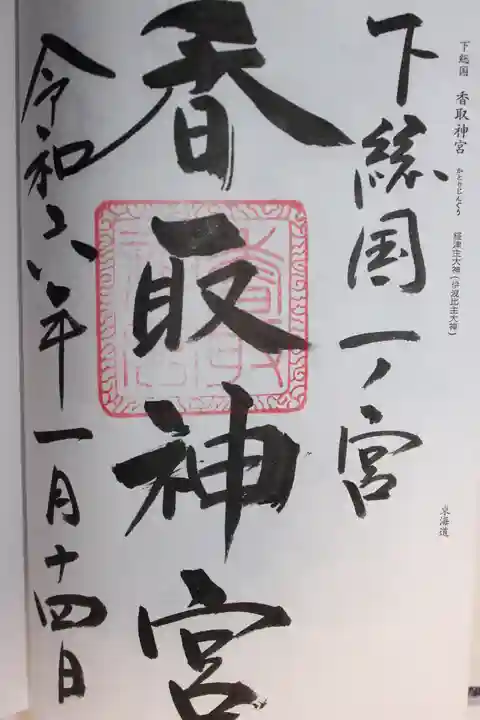 下総国 香取神宮 かとりじんぐう 経津主大神（伊波比主大神）
東海道
下総国一ノ宮
香取神宮
令和六年一月十四日